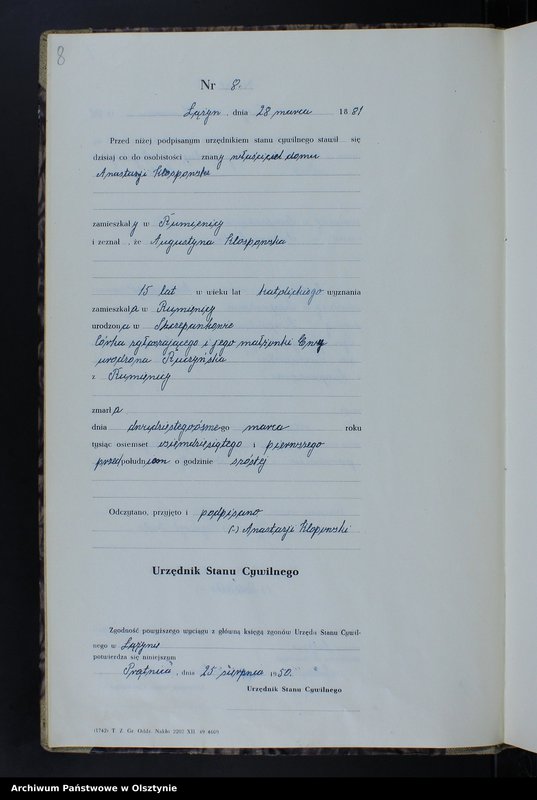 8
Nr 8.
Łążyn, dnia 28 marca 1881
Przed niżej podpisanym urzędnikiem stanu cywilnego stawił się
dzisiaj co do osobistości znany właściciel domu
Anastazji Kłosowski
zamieszkały w Rumienicy
i zeznał, że Augustyna Kłosowska
15 lat w wieku lat katolickiego wyznania
zamieszkała w Rumienicy
urodzona w Szczepankowie
córka zgłaszającego i jego małżonki Ewy
urodzona Ruczyńska
z Rumienicy
zmarła
dnia dwudziestegoósmego marca roku
tysiąc osiemset osiemdziesiątego i pierwszego
przedpołudniem o godzinie szóstej
Odczytano, przyjęto i podpisano
(-) Anastazji
Urzędnik Stanu Cywilnego
Zgodność powyższego wyciągu z główną księgą zgonów Urzędu Stanu Cywil-
nego w Łążynie
potwierdza się niniejszym
Prątnica, dnia 25 sierpnia 1950.
Urzędnik Stanu Cywilnego
(1742) T. Z. Gr. Oddz. Nakło 2202 XII. 49
Archiwum Państwowe w Olsztynie